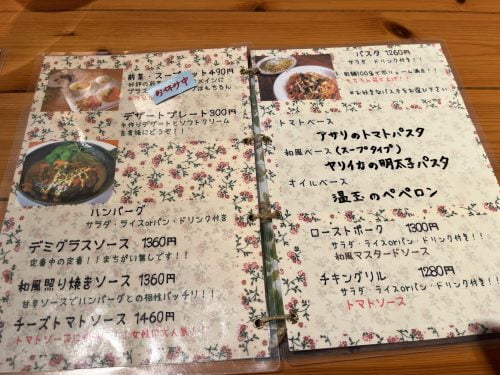 前菜・スープ
ット490円
お休み中
デザートプレート300円
手作りデザートとソフトクリーム
お食後にどうぞ!!
ハンバーグ
サラダ・ライスorパン・ドリンク付き
デミグラスソース 1360円
定番中の定番!!まちがい無しです!
和風照り焼きソース 1360円
甘辛ソースでハンバーグとの相性バッチリ!!
チーズトマトソース 1460円
トマトソースに
女性に大人気!!
パスタ 1260円
サラダ・ドリンク付き!!
お好きなパスタをお選び下さい
トマトベース
アサリのトマトパスタ
和風ベース(スープタイプ)
ヤリイカの明太子パスタ
オイルベース
温玉のペペロン
ローストポーク 1300円
サラダ・ライスorパン・ドリンク付き!!
和風マスタードソース
チキングリル 1280円
サラダ・ライスorパン・ドリンク付き!!
トマトソース